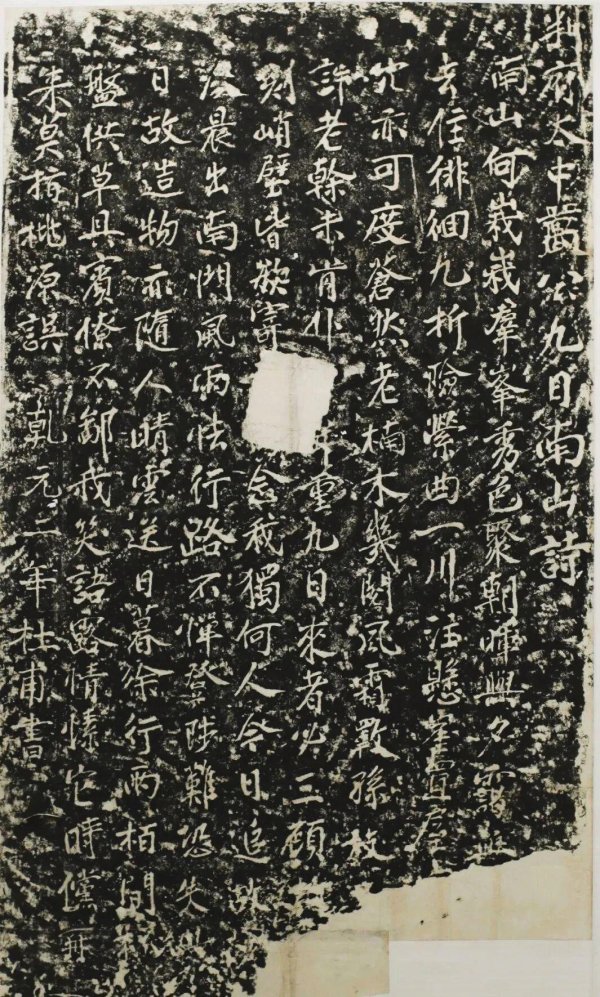 判府太中嚴公九日南山詩
南山何峩峩羣峯秀色聚朝暉與夕靄
去住徘徊九折險縈曲一川注懸崖置屋
穴亦可度蒼然老楠木幾閱風霜數孫枝
許老榦未肯仆重九日來者必三顧
刻峭壁皆龛寄念我獨何人今日追故
凌晨出南門風雨怯行路不惮登陟難恐失
日故造物亦隨人晴雲送日暮徐行两栢間
盤供草具賓僚不鄙我笑語露情愫它時儻再
来莫指桃源誤 乾元二年杜甫書